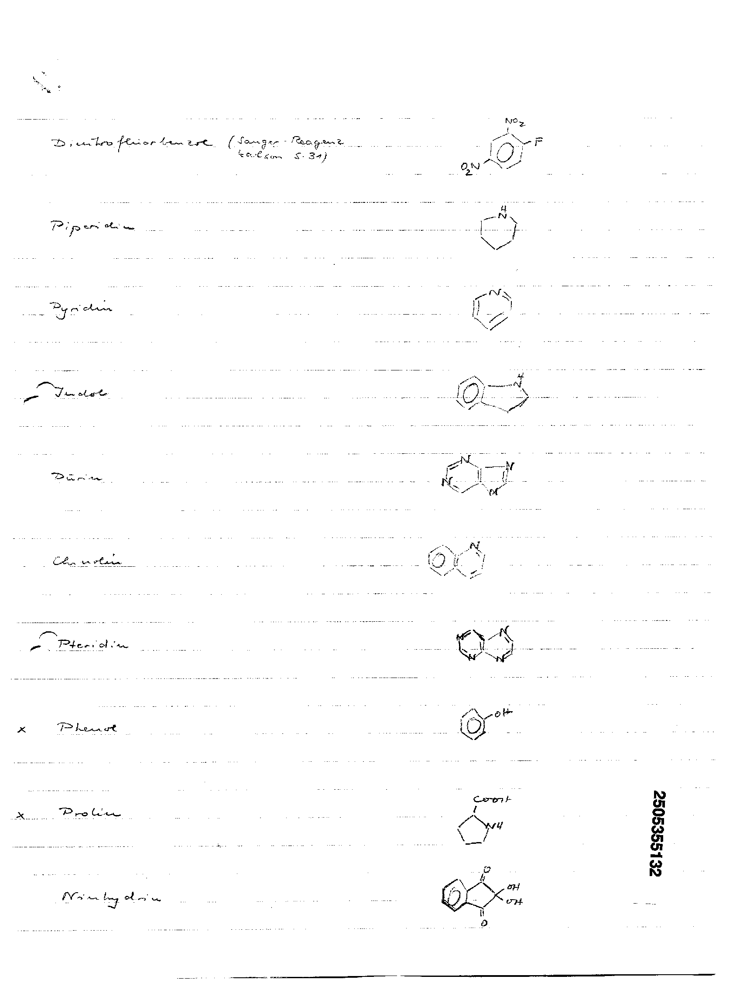 Dinitrofluorbenzol (Sanger-Reagenz
Karlson S. 31)
NO2
F
O2N
Piperidin
H
N
Pyridin
N
Indol
H
N
Purin
N
N
N
N
Chinolin
N
Pteridin
N
N
N
N
x Phenol
OH
x Prolin
COOH
NH
Ninhydrin
O
OH
OH
O
2505355132